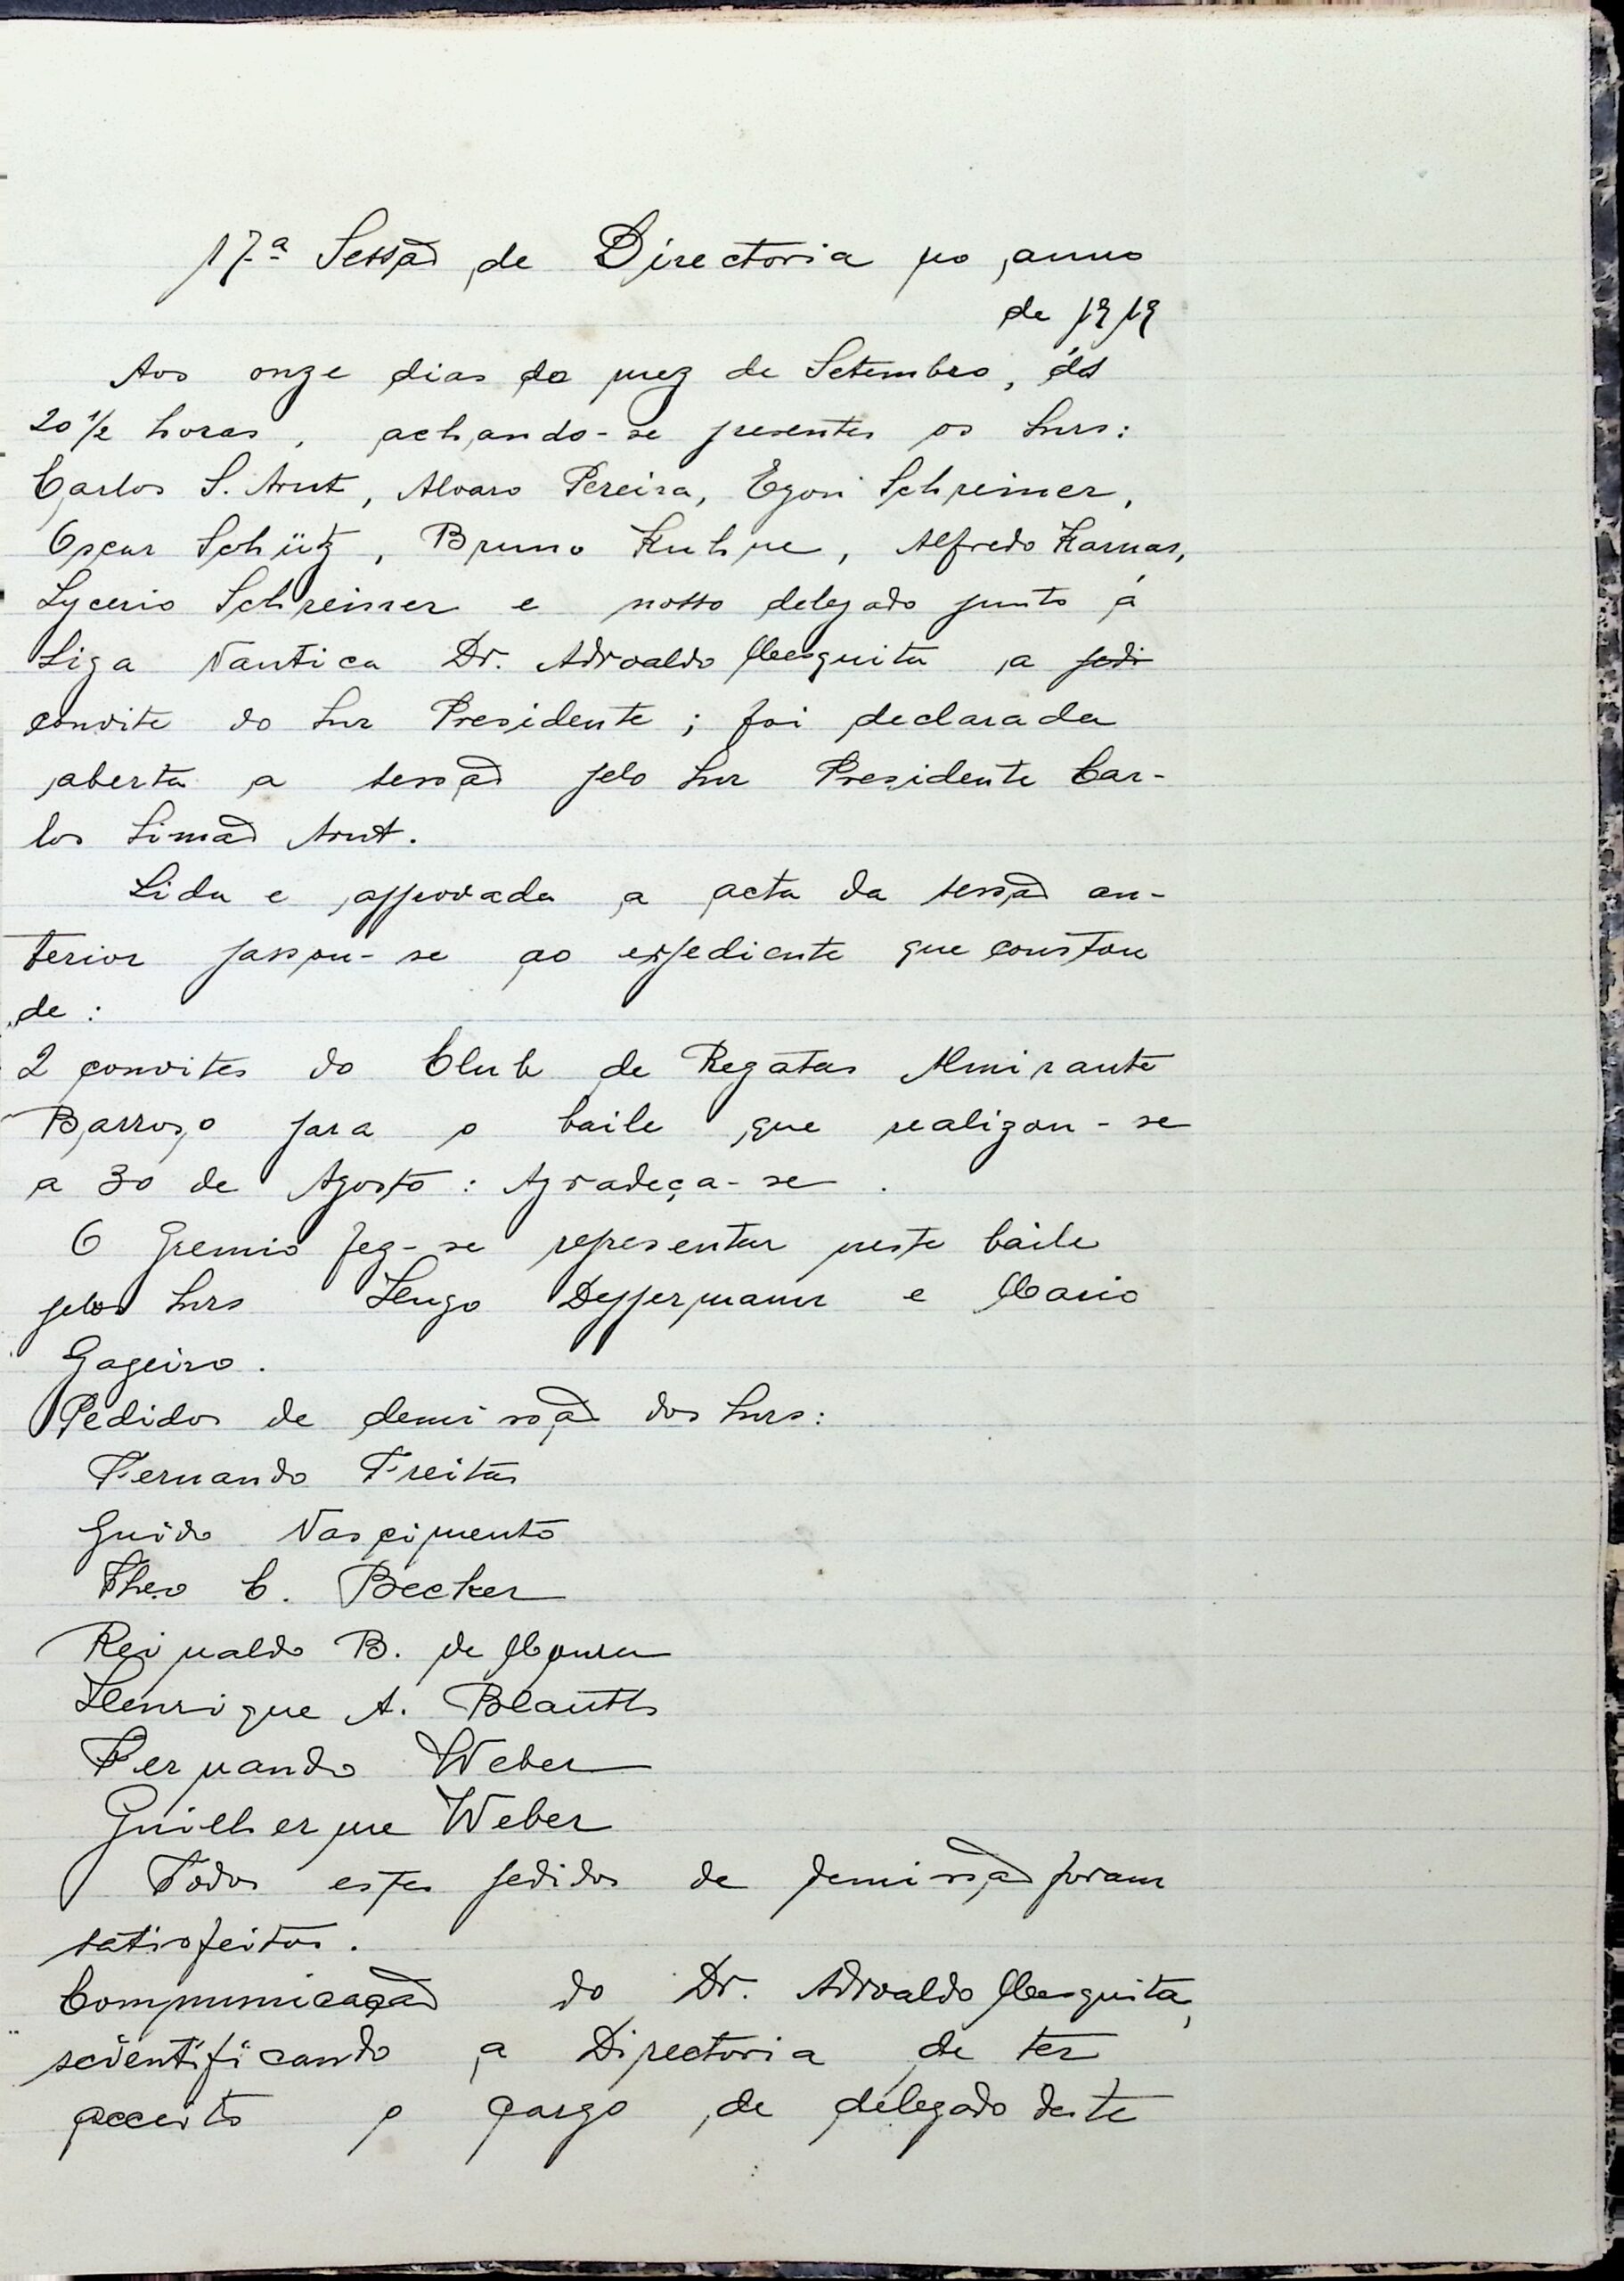 17ª Sessão de Directoria no anno
de 1919
Aos onze dias do mez de Setembro, ás
20 1/2 horas, achando-se presentes os Snrs:
Carlos S. Arnt, Alvaro Pereira, Egon Schreiner,
Oscar Schütz, Bruno Kuhne, Alfredo Karnas,
Lycerio Schreiner e nosso delegado junto á
Liga Nautica Dr. Adroaldo Mesquita a pedi
convite do Snr Presidente; foi declarada
aberta a sessão pelo Snr Presidente Car-
los Simão Arnt.
Lida e approvada a acta da sessão an-
terior passou-se ao expediente que constou
de:
2 convites do Club de Regatas Almirante
Barroso para o baile que realizou-se
a 30 de Agosto: Agradeça-se.
O Gremio fez-se representar neste baile
pelos Snrs Hugo Deppermann e Mario
Gageiro.
Pedidos de demissão dos Snrs:
Fernando Freitas
Guido Nascimento
Theo C. Becker
Reinaldo B. de Moura
Henrique A. Blauth
Fernando Weber
Guilherme Weber
Todos estes pedidos de demissão foram
satisfeitos.
Communicação do Dr. Adroaldo Mesquita,
scientificando a Directoria de ter
acceito o cargo de delegado deste